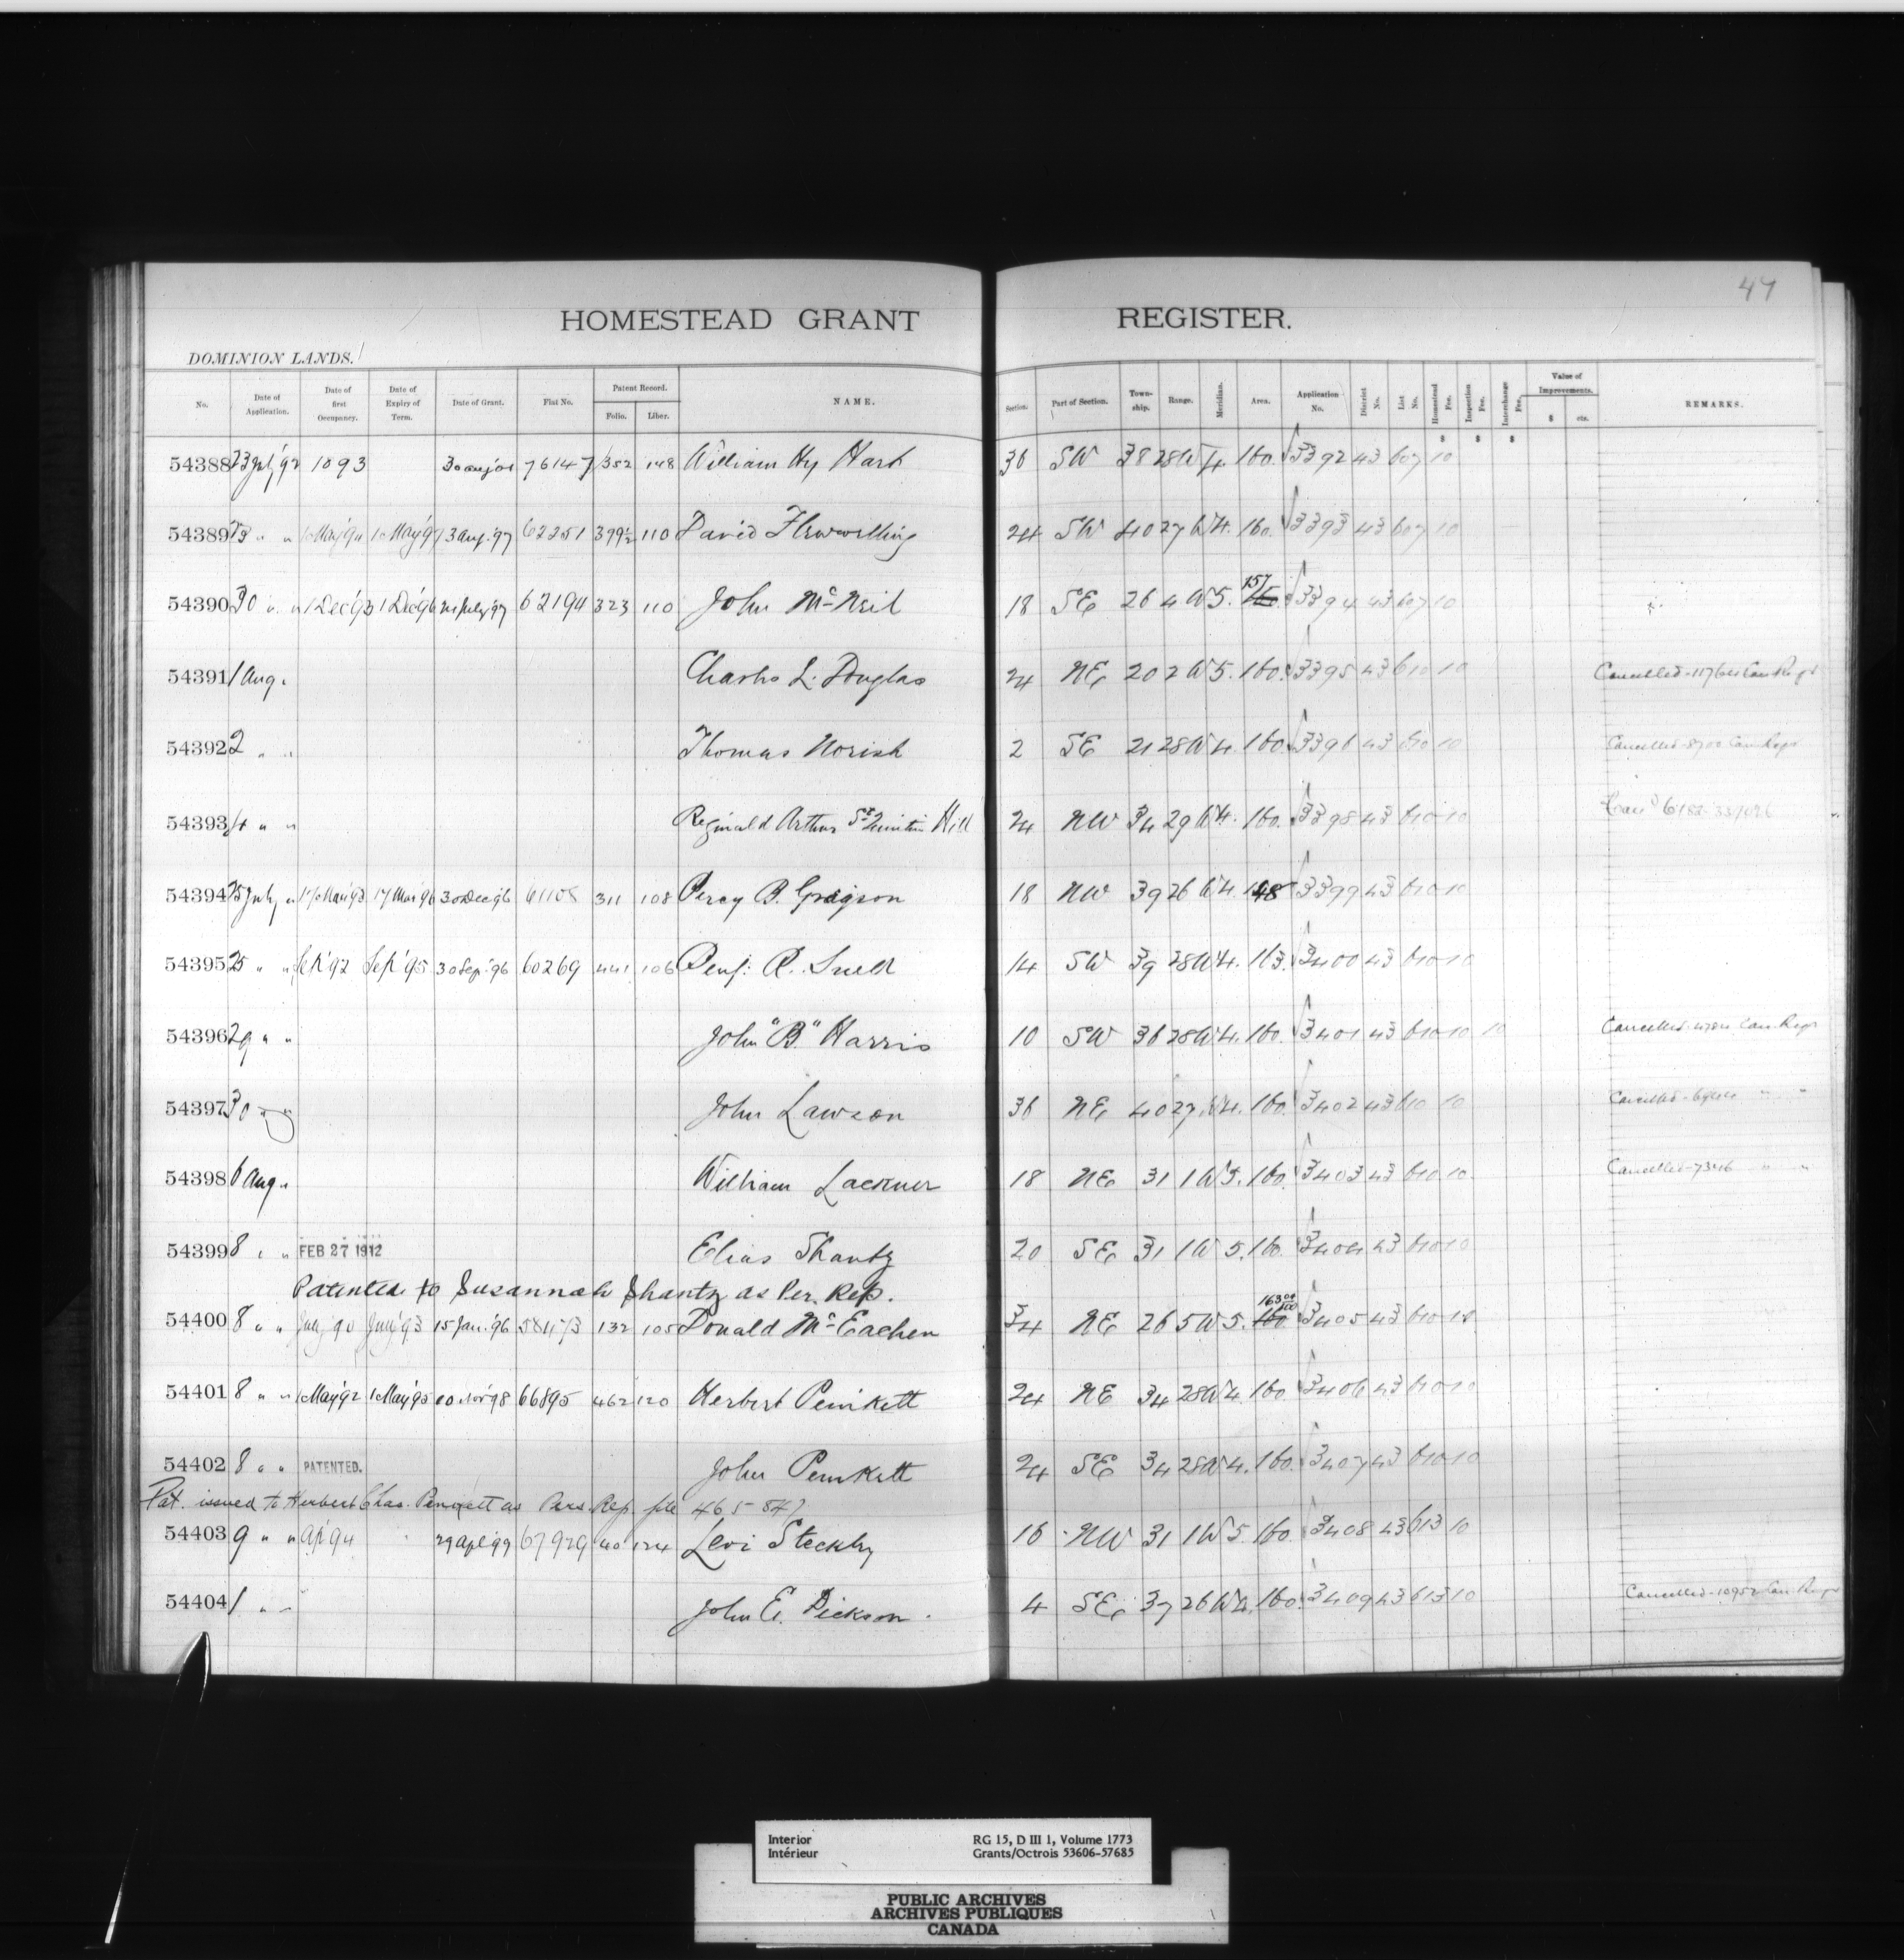 47
HOMESTEAD GRANT REGISTER.
DOMINION LANDS.
No. Date of Application. Date of first Occupancy. Date of Expiry of Term. Date of Grant. Fiat No. Patent Record. Folio. Liber. NAME. Section. Part of Section. Town-ship. Range. Meridian. Area. Application No. District No. List No. Homestead Fee. Inspection Fee. Interchange Fee. Value of Improvements. $ cts. REMARKS.
$ $ $
54388 23 July '92 1893 76147 352 148 William Hy Hart 36 SW 38 28 W 4. 160. 3392 43 607 10
54389 23 " " 1 May '94 1 May '97 13 Aug. '97 62251 399½ 110 David 24 SW 40 27 W 4. 160. 3393 43 607 10
54390 30 " " 1 Dec '93 1 Dec '96 July '97 62194 323 110 John McNeil 18 SE 26 4 W 5. 157 160 3394 43 607 10
54391 1 Aug " Charles L. Douglas 24 NE 20 2 W 5. 160. 3395 43 610 10 Cancelled - Can Regr
54392 2 " " Thomas Norish 2 SE 21 28 W 4. 160. 3396 43 610 10 Cancelled - 8700 Can Regr
54393 4 " " Reginald Arthur St Quintin Hill 24 NW 34 29 W 4. 160. 3398 43 610 10
54394 25 July " 17 Mar '93 17 Mar '96 30 Dec '96 61108 311 108 Percy B. Gregson 18 NW 39 26 W 4. 148 3399 43 610 10
54395 25 " " Sep '92 Sep '95 30 Sep. '96 60269 441 106 Benj. R. Snell 14 SW 39 28 W 4. 163. 3400 43 610 10
54396 29 " " John "B" Harris 10 SW 36 28 W 4. 160. 3401 43 610 10 10 Cancelled Can Regr
54397 30 " " John Lawson 36 NE 40 27 W 4. 160. 3402 43 610 10 Cancelled " "
54398 6 Aug " William Lackner 18 NE 31 1 W 5. 160. 3403 43 610 10 Cancelled - 7346 " "
54399 8 " " FEB 27 1912 Elias Shantz 20 SE 31 1 W 5. 160. 3404 43 610 10
Patented to Susannah Shantz as Per. Rep.
54400 8 " " July '90 July '93 15 Jan. '96 58473 132 105 Donald McEachen 34 NE 26 5 W 5. 163 04/100 160 3405 43 610 10
54401 8 " " 1 May '92 1 May '95 Nov '98 66895 462 120 Herbert Penkett 24 NE 34 28 W 4. 160. 3406 43 610 10
54402 8 " " PATENTED. John Penkett 24 SE 34 28 W 4. 160. 3407 43 610 10
Pat. issued to Herbert Chas. Penkett as Pers. Rep. file 465847.
54403 9 " " Ap '94 29 Apl '99 67929 40 124 Levi Steckly 16 NW 31 1 W 5. 160. 3408 43 613 10
54404 1 " " John E. Dickson. 4 SE 37 26 W 4. 160. 3409 43 613 10 Cancelled - 10952 Can Regr
Interior RG 15, D III 1, Volume 1773
Intérieur Grants/Octrois 53606-57685
PUBLIC ARCHIVES
ARCHIVES PUBLIQUES
CANADA